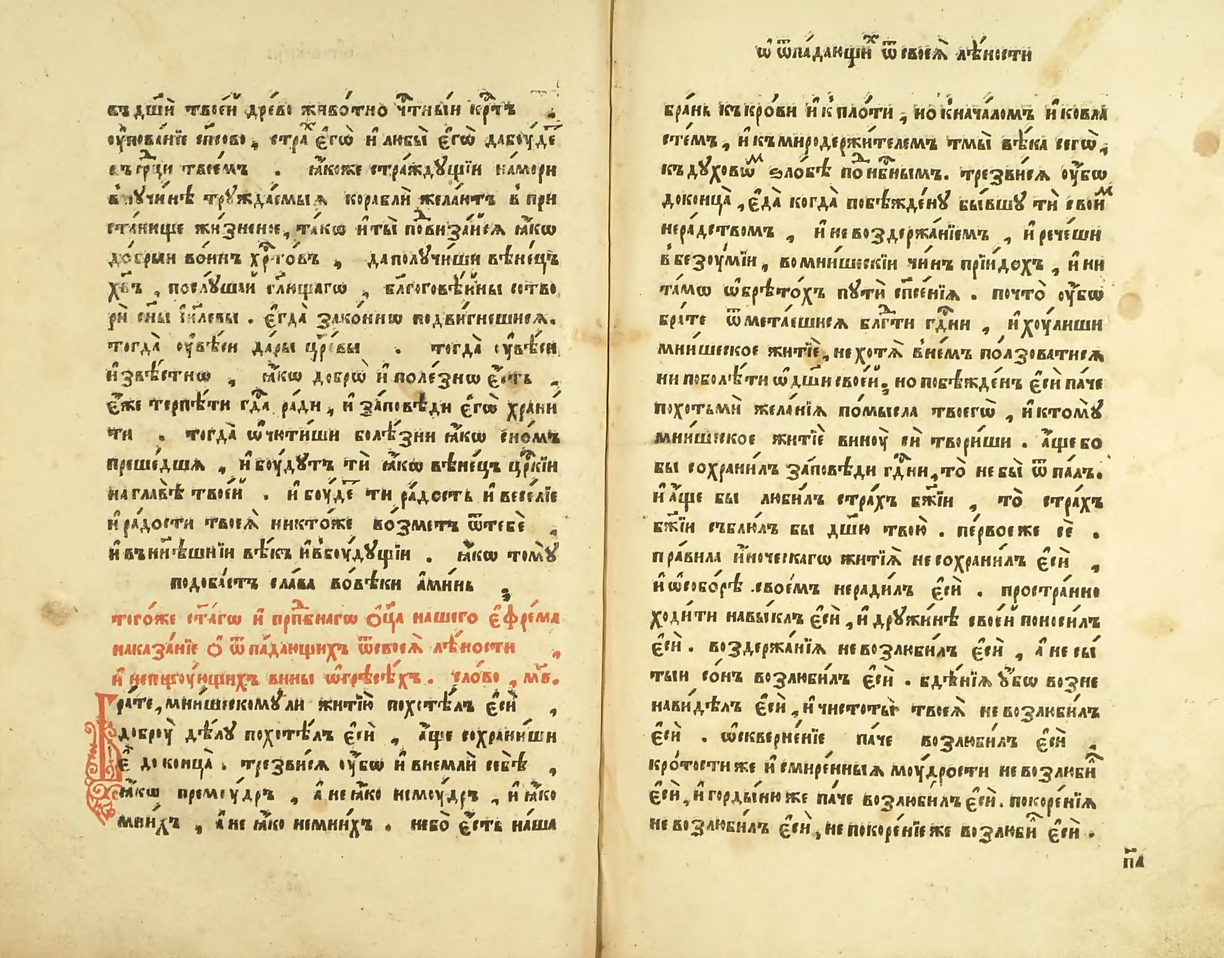 въ дш҃и твоєй дрѐво живо́тно ч҇тныи кр҇тъ
ᲂу҆пова́нїе сп҃сово, стра́х є҆гѡ̀ и҆ любы̀ є҆гѡ̀ дабꙋ́де
въ ср҇дци твое́мъ . ꙗ҆́коже стра́ждꙋщїи на́мори
в пꙋчи́нѣ трꙋжда́емыѧ корабли̑ жела́ютъ в при
ста́нище жи́зненое, та́кѡ и҆ ты̀ по́двизайсѧ ꙗ҆́кѡ
до́брыи во́инъ хр҇то́въ , да полꙋчи́ши вѣне́цъ
хв҃ъ , послꙋ́шаи гл҃щагѡ , бл҃гоговѣ́йны сотво
рѝ сн҃ы і҆и҃левы . є҆гда̀ зако́ннѡ подви́гнешисѧ.
тогда̀ ᲂу҆вѣ́си да́ры цр҇е́вы . тогда̀ ᲂу҆вѣ́си
и҆звѣ́стнѡ , ꙗ҆́кѡ добрѡ̀ и҆ поле́знѡ є҆́сть ,
є҆́же терпѣ́ти гд҇а ра́ди , и҆ за́повѣди є҆гѡ̀ храни́
ти . тогда̀ ѡ҆чю́тиши болѣ́зни ꙗ҆́кѡ сно́мъ
преше́дшѧ , и҆ бꙋ́дꙋтъ тѝ ꙗ҆́кѡ вѣне́цъ цр҇кїи
на главѣ̀ твое́й . и҆ бꙋ́де ти ра́дость и҆ весе́лїе
и҆ ра́дости твоеѧ̀ никто́же во́зметъ ѿ тебѐ ,
и҆ въ ны́нѣшнїи вѣ́къ и҆ в бꙋ́дꙋщїи . ꙗ҆́кѡ томꙋ̀
подоба́етъ сла́ва во́вѣки а҆ми́нь
того́же ст҃а́гѡ и҆ прпⷣбнагѡ ѻ҆ц҃а̀ на́шего є҆фре́ма
наказа́нїе ѻ҆ ѿпа́дающихъ ѿ своеѧ̀ лѣ́ности ,
и҆ непщꙋ́ющихъ вины̀ ѡ҆ грѣсѣ́хъ . сло́во , м҃в.
Бра́те, мни́шескомꙋ ли житїю̀ похотѣ́лъ є҆сѝ ,
доброꙋ̀ дѣ́лꙋ похотѣ́лъ є҆сѝ , а҆́ще сохрани́ши
є҆̀ до конца̀ . трезви́сѧ ᲂу҆́бѡ и҆ внемли́ себѣ̀ ,
ꙗ҆́кѡ премꙋ́дръ , а҆ не ꙗ҆́ко немꙋ́дръ , и҆ ꙗ҆́ко
мни́хъ , а҆ не ꙗ҆́ко немни́хъ . не бо̀ є҆́сть на́ша
ѡ҆ ѿпа́дающих ѿ своеѧ̀ лѣ́ности
бра́нь къ кро́ви и҆ к пло́ти , но к нача́ломъ и҆ ко вла
сте́мъ , и҆ къ миродержи́телемъ тмы̀ вѣ́ка сегѡ̀ ,
къ дꙋ́ховѡм ѕло́бѣ поⷣнбⷭнымъ . трезви́сѧ ᲂу҆́бѡ
до конца̀ , є҆да̀ когда̀ побѣжде́нꙋ бы́вшꙋ тѝ свои́м
нера́дствомъ , и҆ невоздержа́нїемъ , и҆ рече́ши
в безꙋ́мїи , во мни́шескїи чи́нъ прїидо́хъ , и҆ ни
та́мѡ ѡ҆брѣто́хъ пꙋтѝ спⷭе́нїѧ . почто̀ ᲂу҆́бѡ
бра́те ѿмета́ешисѧ блгⷣти гдⷭни , и҆ хꙋ́лиши
мни́шеское житїѐ, не хотѧ̀ в не́мъ по́лзоватисѧ
ни поболѣ́ти ѡ҆ дш҃и свое́й, но побѣжде́нъ є҆сѝ па́че
по́хотьми жела́нїѧ по́мысла твоегѡ̀ , и҆ ктомꙋ̀
мни́шеское житїѐ винꙋ̀ сѝ твори́ши . а҆́ще бо
бы сохрани́лъ за́повѣди гдⷭни, то̀ не бы̀ ѿпа́лъ.
и҆ а҆́ще бы люби́лъ стра́хъ бж҃їи , то̀ стра́хъ
бж҃їи съблю́лъ бы дш҃ю твою̀ . пе́рвое же сѐ .
пра́вила и҆́ноческагѡ житїѧ̀ не сохрани́лъ є҆сѝ ,
и҆ ѡ҆ собо́рѣ своє́мъ неради́лъ є҆сѝ . простра́нно
ходи́ти навы́клъ є҆сѝ , и҆ дрꙋжи́нѣ свое́й поноси́лъ
є҆сѝ . воздержа́нїѧ не возлюби́лъ є҆сѝ , а҆ не сы́
тыи со́нъ возлюби́лъ є҆сѝ . бдѣ́нїѧ ᲂу҆́бѡ возне
нави́дѣлъ є҆сѝ , и҆ чистоты̀ твоеѧ̀ не возлюби́лъ
є҆сѝ . ѡ҆скверне́нїе па́че возлюби́лъ є҆сѝ ,
кро́тости же и҆ смире́нныѧ мꙋ́дрости не возлюби́л
є҆сѝ , и҆ горды́ню же па́че возлюби́лъ є҆сѝ. покоре́нїѧ
не возлюби́лъ є҆сѝ , не покоре́нїе же возлюби́л є҆сѝ .
п҃а